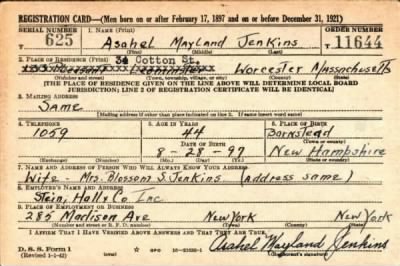 REGISTRATION CARD—(Men born on or after February 17, 1897 and on or before December 31, 1921)
SERIAL NUMBER 1. NAME (Print) ORDER NUMBER
U 625 Asahel Mayland Jenkins 11644
(First) (Middle) (Last)
2. PLACE OF RESIDENCE (Print) 34 Cotton St.
Pleasant Leominster Worcester Massachusetts
(Number and street) (Town, township, village, or city) (County) (State)
[THE PLACE OF RESIDENCE GIVEN ON THE LINE ABOVE WILL DETERMINE LOCAL BOARD
JURISDICTION; LINE 2 OF REGISTRATION CERTIFICATE WILL BE IDENTICAL]
3. MAILING ADDRESS
Same
[Mailing address if other than place indicated on line 2. If same insert word same]
4. TELEPHONE 5. AGE IN YEARS 6. PLACE OF BIRTH
1059 44 Barnstead
DATE OF BIRTH (Town or county)
8-28-97 New Hampshire
(Exchange) (Number) (Mo.) (Day) (Yr.) (State or country)
7. NAME AND ADDRESS OF PERSON WHO WILL ALWAYS KNOW YOUR ADDRESS
Wife - Mrs. Blossom S. Jenkins (address same)
8. EMPLOYER'S NAME AND ADDRESS
Stein, Hall & Co Inc
9. PLACE OF EMPLOYMENT OR BUSINESS
285 Madison Ave New York New York
(Number and street or R. F. D. number) (Town) (County) (State)
I AFFIRM THAT I HAVE VERIFIED ABOVE ANSWERS AND THAT THEY ARE TRUE.
D. S. S. Form 1 GPO Asahel Mayland Jenkins
(Revised 1-1-42) (over) (Registrant's signature)